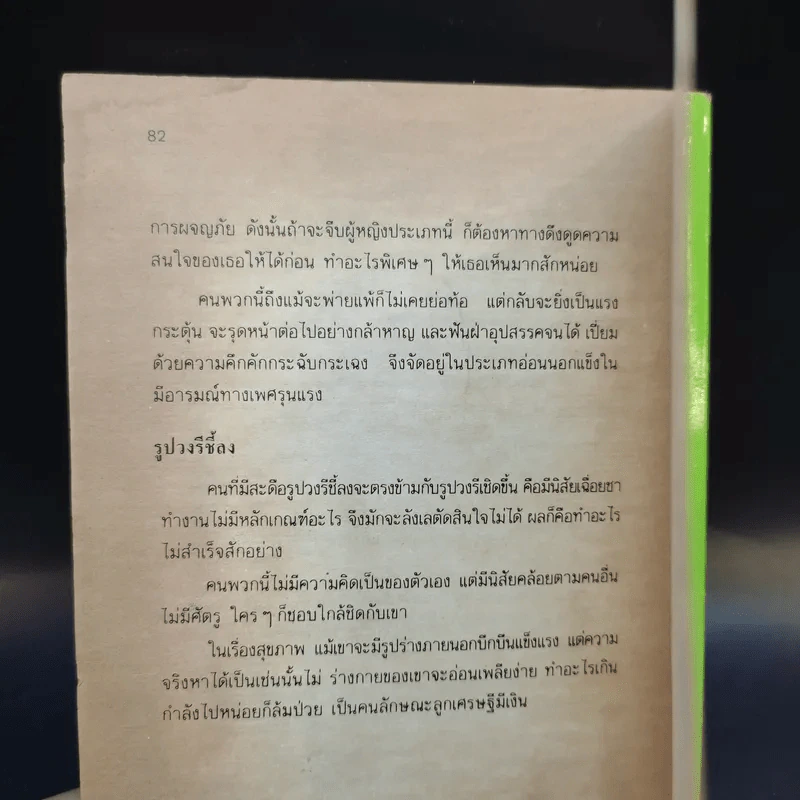 82
การผจญภัย ดังนั้นถ้าจะจีบผู้หญิงประเภทนี้ ก็ต้องหาทางดึงดูดความ
สนใจของเธอให้ได้ก่อน ทำอะไรพิเศษ ๆ ให้เธอเห็นมากสักหน่อย
คนพวกนี้ถึงแม้จะพ่ายแพ้ก็ไม่เคยย่อท้อ แต่กลับจะยิ่งเป็นแรง
กระตุ้น จะรุดหน้าต่อไปอย่างกล้าหาญ และฟันฝ่าอุปสรรคจนได้ เปี่ยม
ด้วยความคึกคักกระฉับกระเฉง จึงจัดอยู่ในประเภทอ่อนนอกแข็งใน
มีอารมณ์ทางเพศรุนแรง
รูปวงรีชี้ลง
คนที่มีสะดือรูปวงรีชี้ลงจะตรงข้ามกับรูปวงรีเชิดขึ้น คือมีนิสัยเฉื่อยชา
ทำงานไม่มีหลักเกณฑ์อะไร จึงมักจะลังเลตัดสินใจไม่ได้ ผลก็คือทำอะไร
ไม่สำเร็จสักอย่าง
คนพวกนี้ไม่มีความคิดเป็นของตัวเอง แต่มีนิสัยคล้อยตามคนอื่น
ไม่มีศัตรู ใคร ๆ ก็ชอบใกล้ชิดกับเขา
ในเรื่องสุขภาพ แม้เขาจะมีรูปร่างภายนอกบึกบึนแข็งแรง แต่ความ
จริงหาได้เป็นเช่นนั้นไม่ ร่างกายของเขาจะอ่อนเพลียง่าย ทำอะไรเกิน
กำลังไปหน่อยก็ล้มป่วย เป็นคนลักษณะลูกเศรษฐีมีเงิน